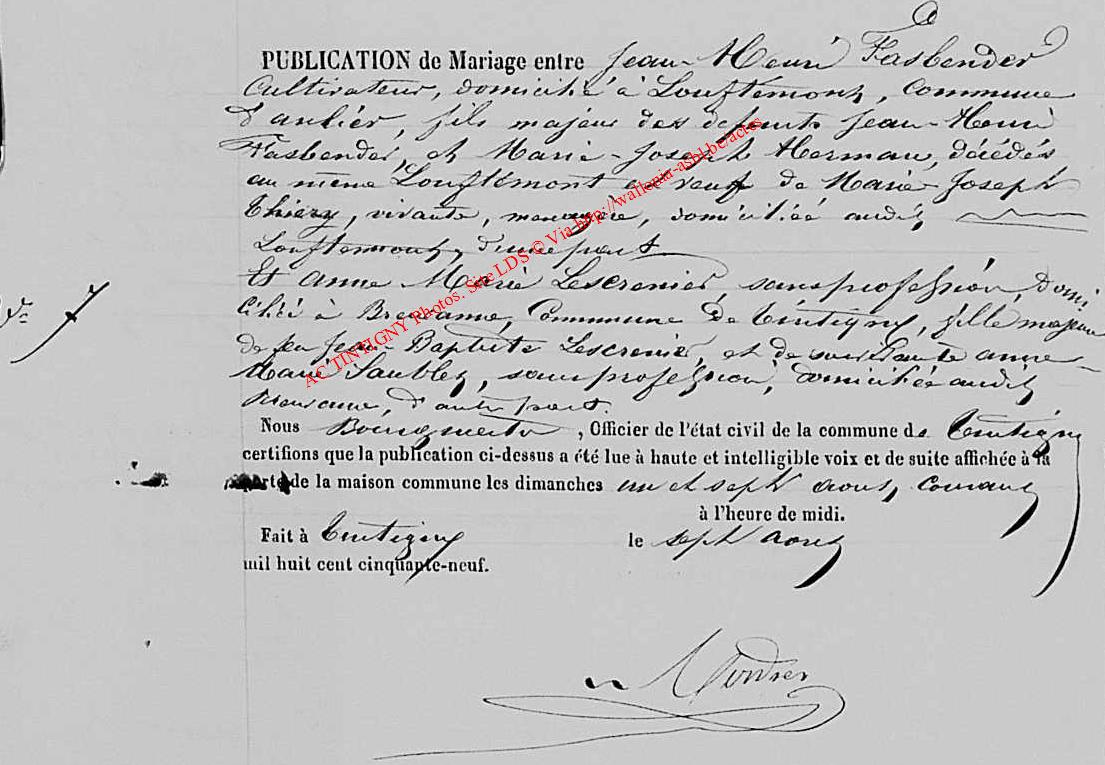 PUBLICATION de Mariage entre Jean-Henri Fasbender
Cultivateur, domicilié à Louftémont, Commune
d'anlier, fils majeur des défunts Jean-Henri
Fasbender, et Marie-Joseph Herman, décédés
au même Louftémont et veuf de Marie-Joseph
Thiéry, vivante, menagère, domiciliée audit
Louftémont, d'une part
Et anne Marie Lescrenier, sans profession, domi
ciliée à Breuvanne, Commune de Tintigny, fille majeure
de feu Jean-Baptiste Lescrenier, et de survivante anne-
Marie Saublez, sans profession, domiciliée audit
Breuvanne, d'autre part.
N° 7
Nous , Officier de l'état civil de la commune de Tintigny
certifions que la publication ci-dessus a été lue à haute et intelligible voix et de suite affichée à la
porte de la maison commune les dimanches un et sept aout, courant
à l'heure de midi.
Fait à Tintigny le sept aout
mil huit cent cinquante-neuf.
ACTINTIGNY Photos. Site LDS © Via http://wallonia-asbl.be/actes